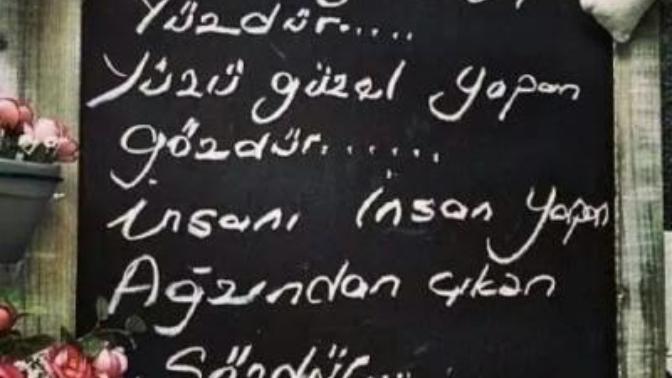 Yüzdür.....
Yüzü güzel yapan
gözdür.......
İnsanı insan yapan
Ağzından çıkan
Sözdür....